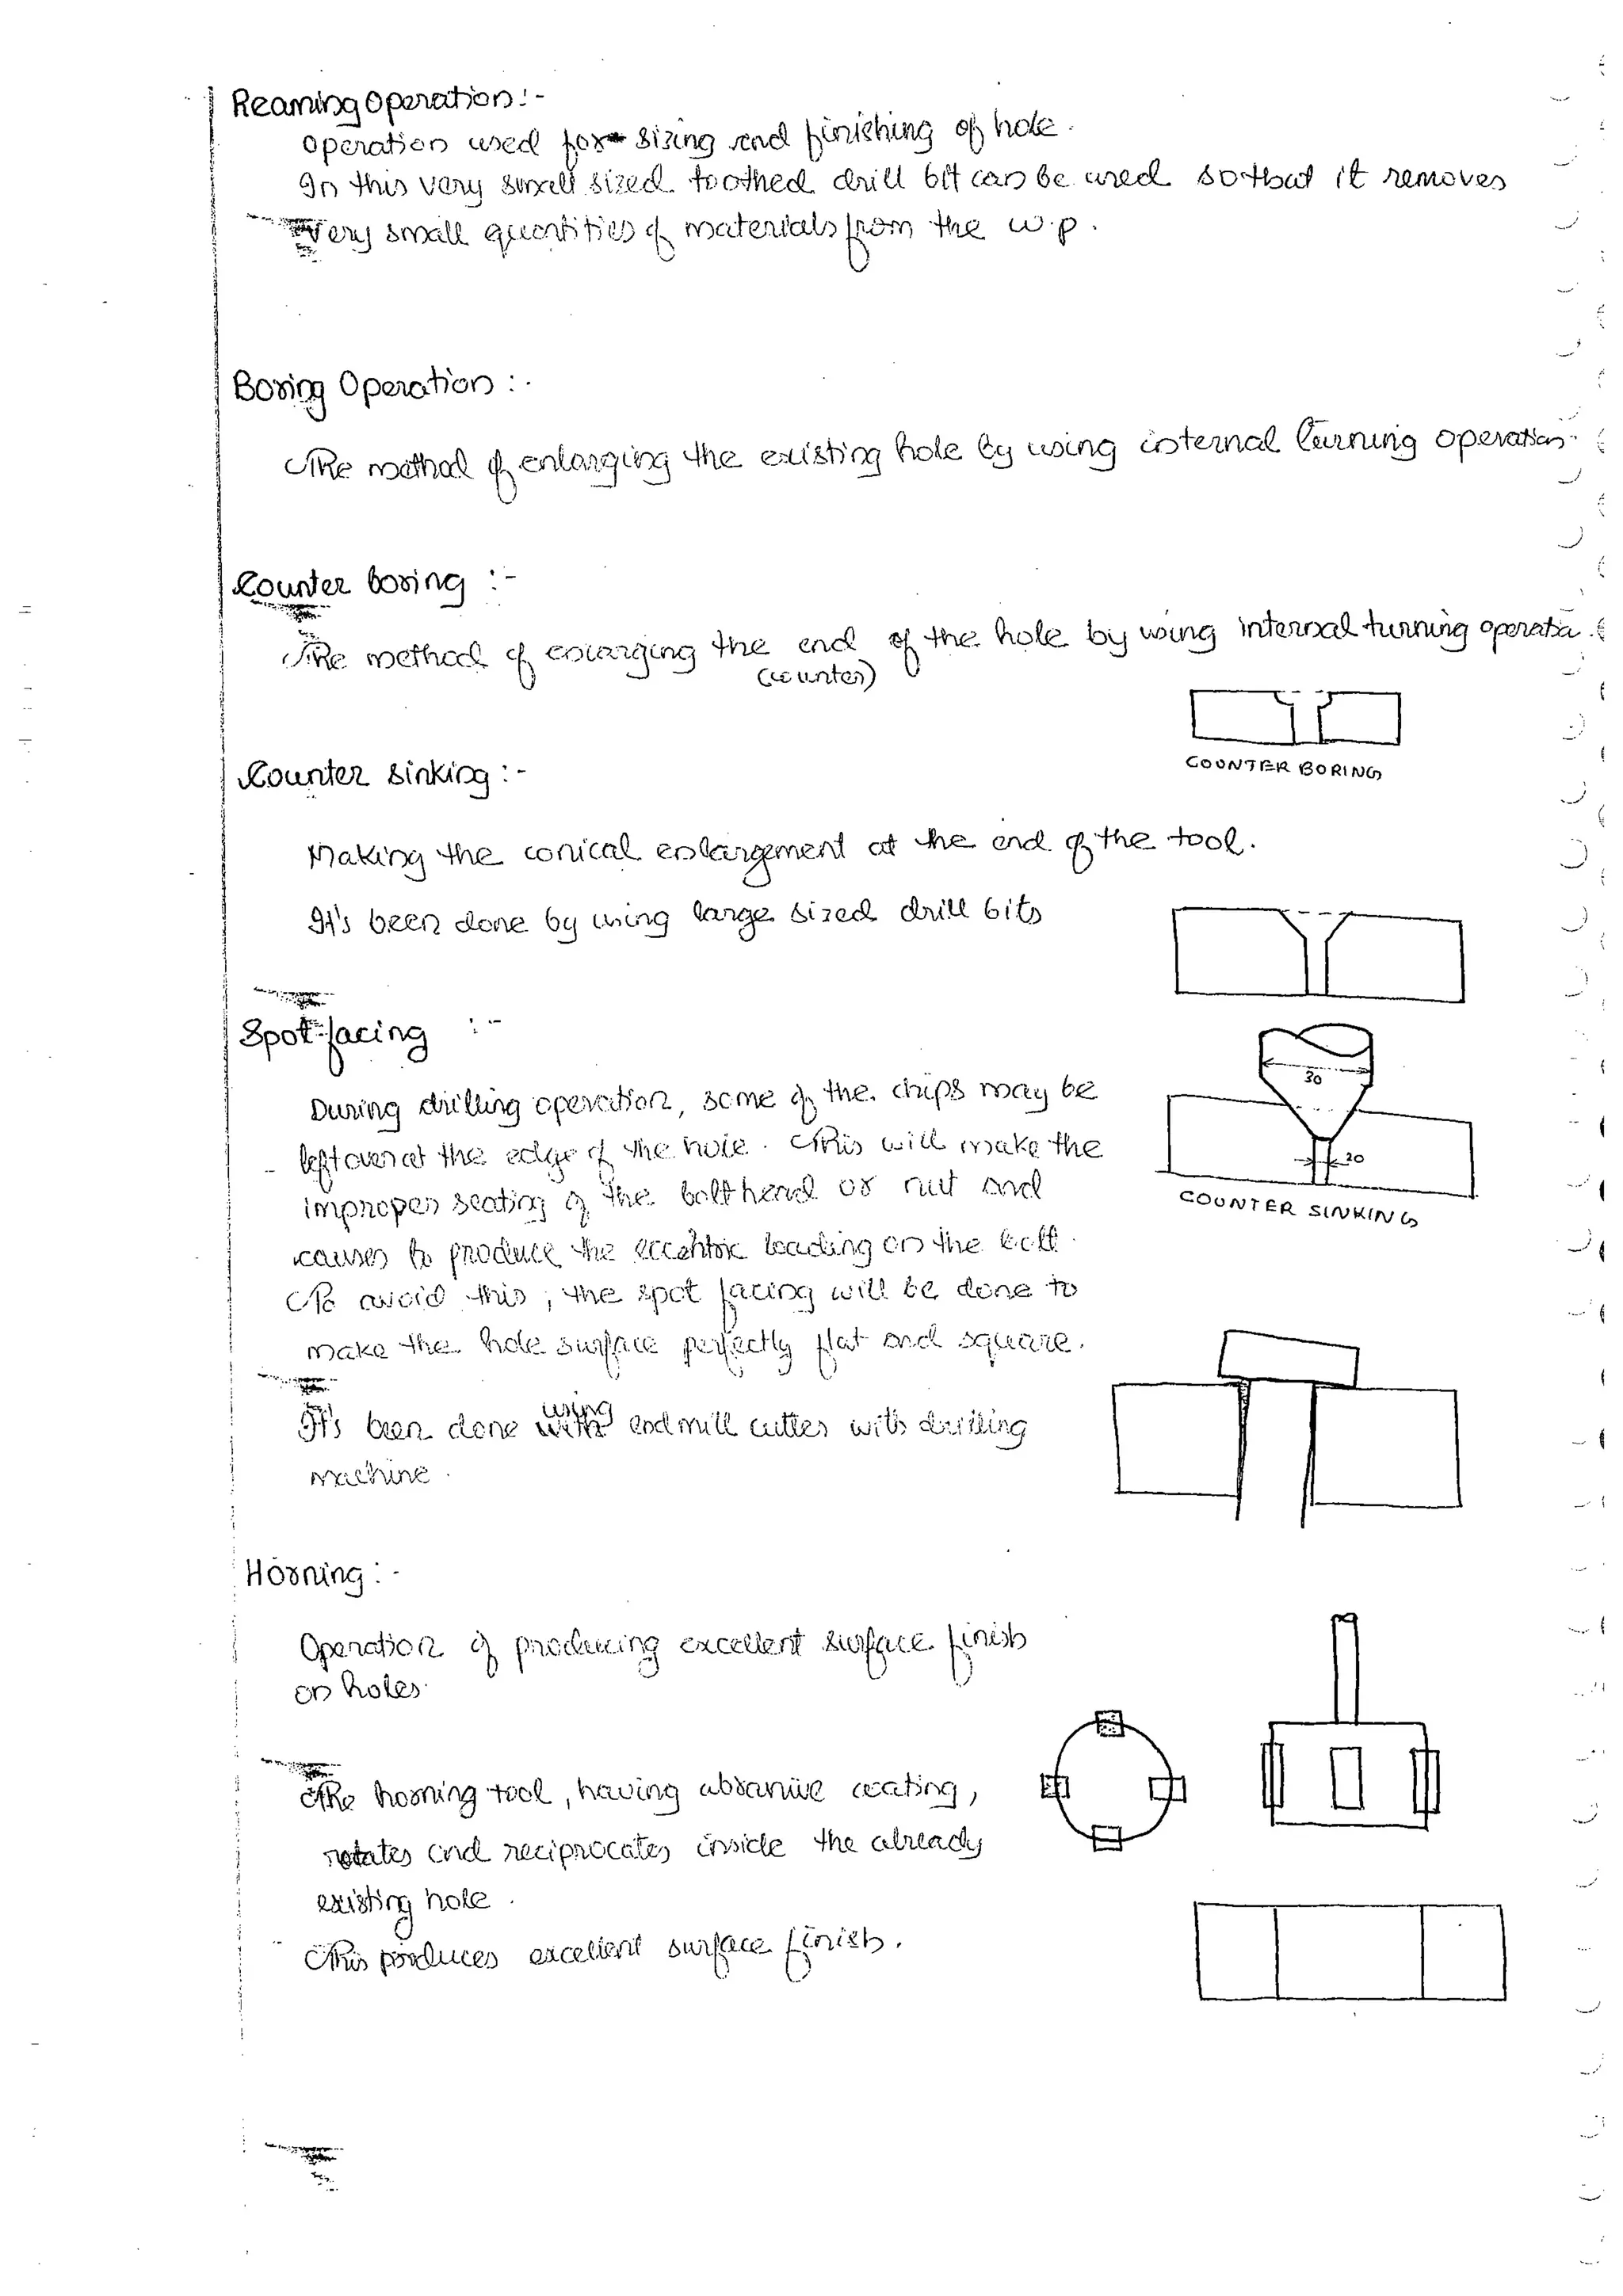 Reaming Operation:-
Operation used for sizing and finishing of hole.
In this very small sized toothed drill bit can be used so that it removes
very small quantities of materials from the w.p.
Boring Operation :-
The method of enlarging the existing hole by using internal turning operation.
Counter boring :-
The method of enlarging the end of the hole by using internal turning operatio.
(counter)
COUNTER BORING
Counter sinking :-
Making the conical enlargement at the end of the tool.
It's been done by using large sized drill bits
Spot-facing :-
30
During drilling operation, some of the chips may be
left over at the edge of the hole. This will make the
20
improper seating of the bolt head or nut and
COUNTER SINKING
causes to produce the eccentric loading on the bolt.
To avoid this, the spot facing will be done to
make the hole surface perfectly flat and square.
using
It's been done with end mill cutter with drilling
machine.
Horning :-
Operation of producing excellent surface finish
on holes.
The horning tool, having abrasive coating,
rotates and reciprocates inside the already
existing hole.
This produces excellent surface finish.